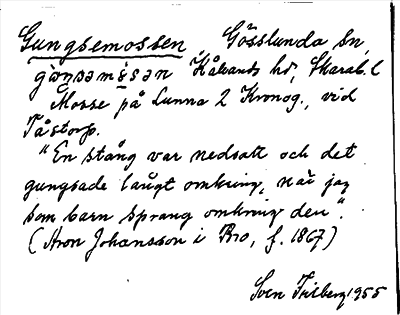 Gungsemossen, Gösslunda sn,
gåŋsəmåsən Kålands hd, Skarab. l
Mosse på Lunna 2 Kronog., vid
Tåstorp.
"En stång var nedsatt och det
gungade långt omkring, när jag
som barn sprang omkring den".
(Aron Johansson i Bro, f. 1867)
Sven 1955